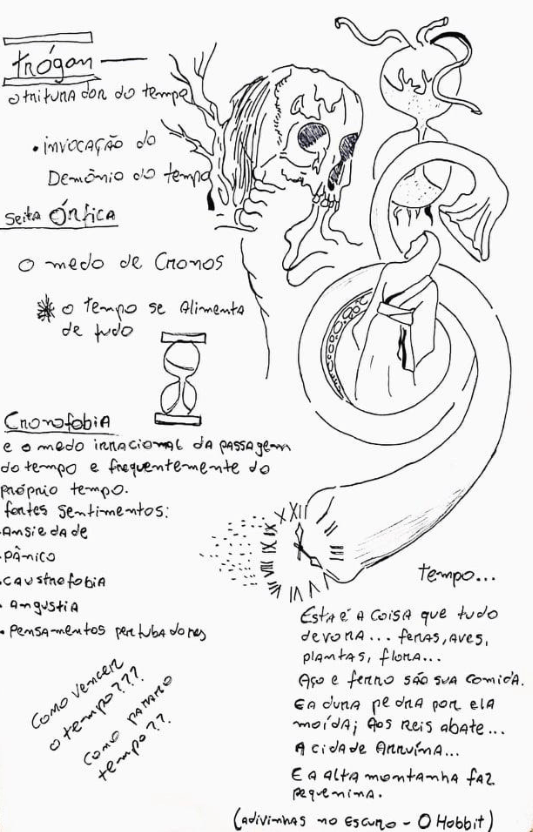 trógon
o tritura dor do tempo
• invocação do
Demônio do tempo
Seita Órfica
O medo de Cronos
o tempo se Alimenta
de tudo
Cronofobia
e o medo irracional da passagem
do tempo e frequentemente do
próprio tempo.
fortes sentimentos:
• Ansiedade
• Pânico
• caustrofobia
• angustia
• Pensamentos pertubadores
Como vencer
o tempo???
como parar o
tempo??
XII
X
IX
IX
VIII
VI
V
III
tempo...
Esta é a coisa que tudo
devora... feras, aves,
plantas, flora...
Aço e ferro são sua comida.
E a dura pedra por ela
moída; Aos Reis abate...
A cidade Arruína...
E a alta montanha faz
pequenina.
(adivinhas no Escuro - O Hobbit)